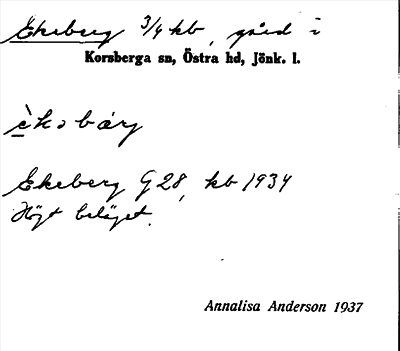 Ekeberg 3/4 kb, gård i
Korsberga sn, Östra hd, Jönk. l.
èkəbærj
Ekeberg G 28, kb 1934
Högt beläget.
Annalisa Anderson 1937